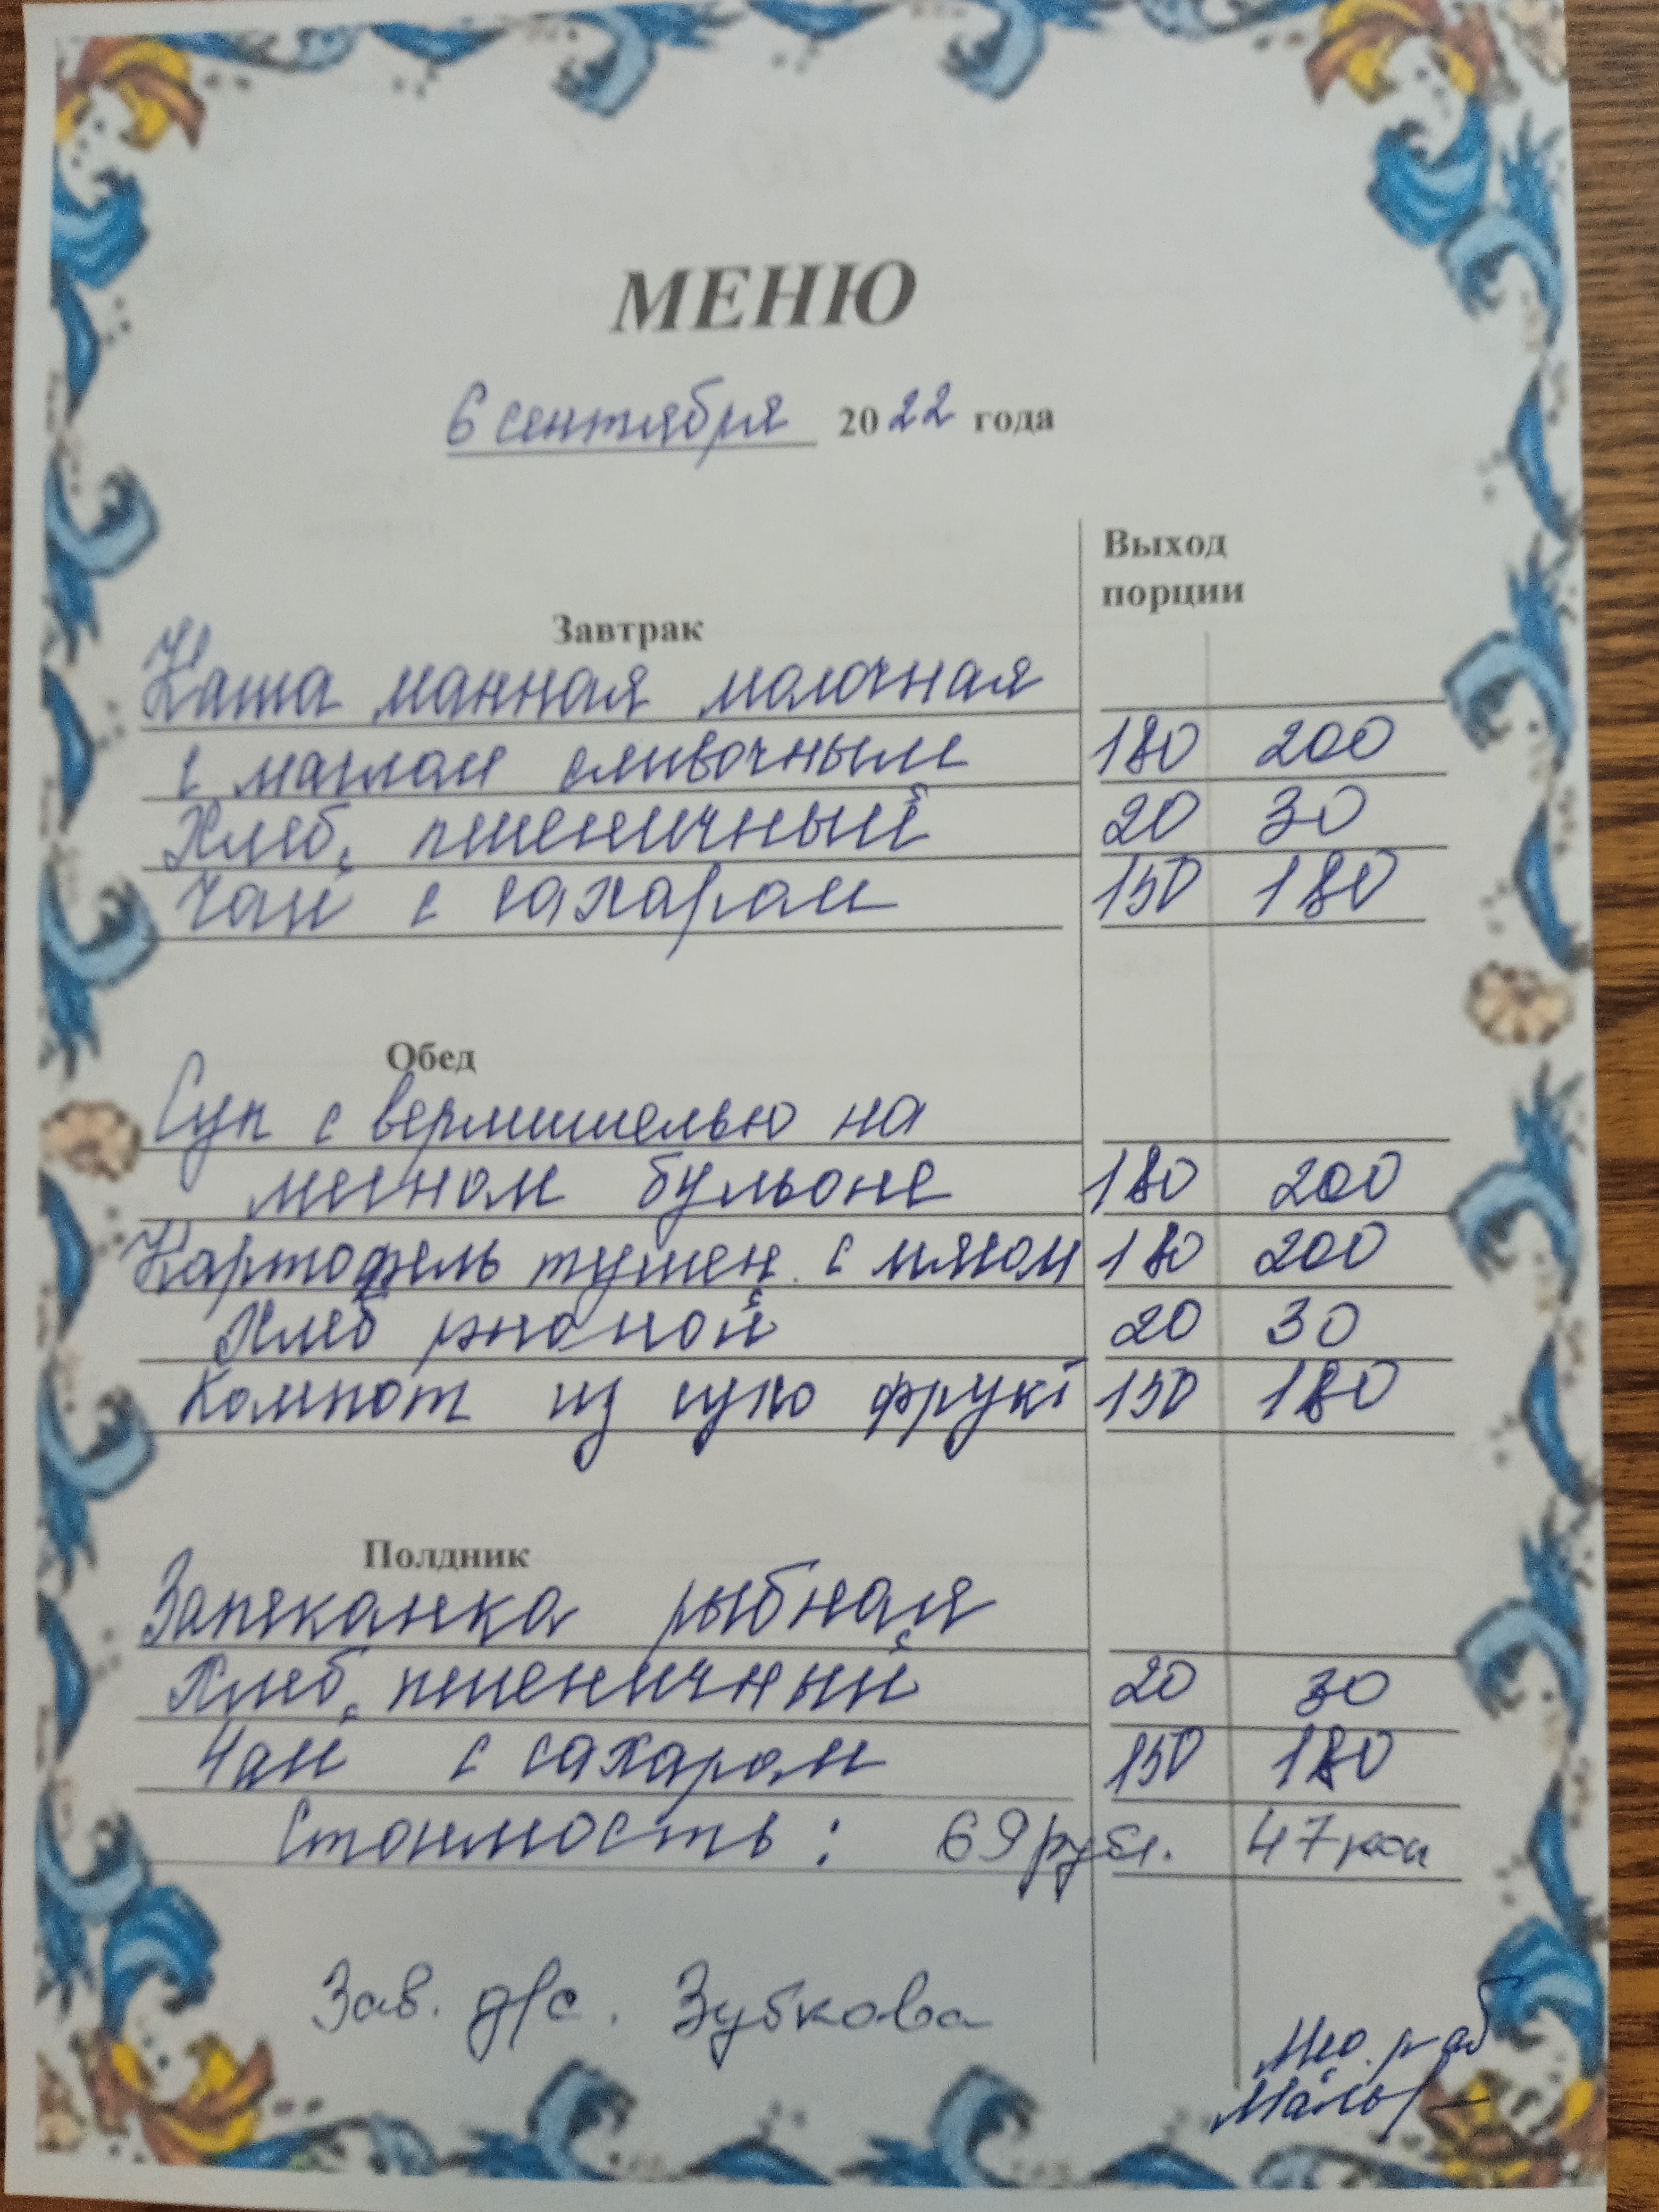 МЕНЮ
6 сентября 2022 года
Выход
порции
Завтрак
Каша манная молочная
с маслом сливочным 180 200
Хлеб пшеничный 20 30
Чай с сахаром 150 180
Обед
Суп с вермишелью на
мясном бульоне 180 200
Картофель тушен. с мясом 180 200
Хлеб ржаной 20 30
Компот из сухо фрукт 150 180
Полдник
Запеканка рыбная
Хлеб пшеничный 20 30
Чай с сахаром 150 180
Стоимость: 69 рубл. 47 коп
Зав. д/с. Зубкова
раб